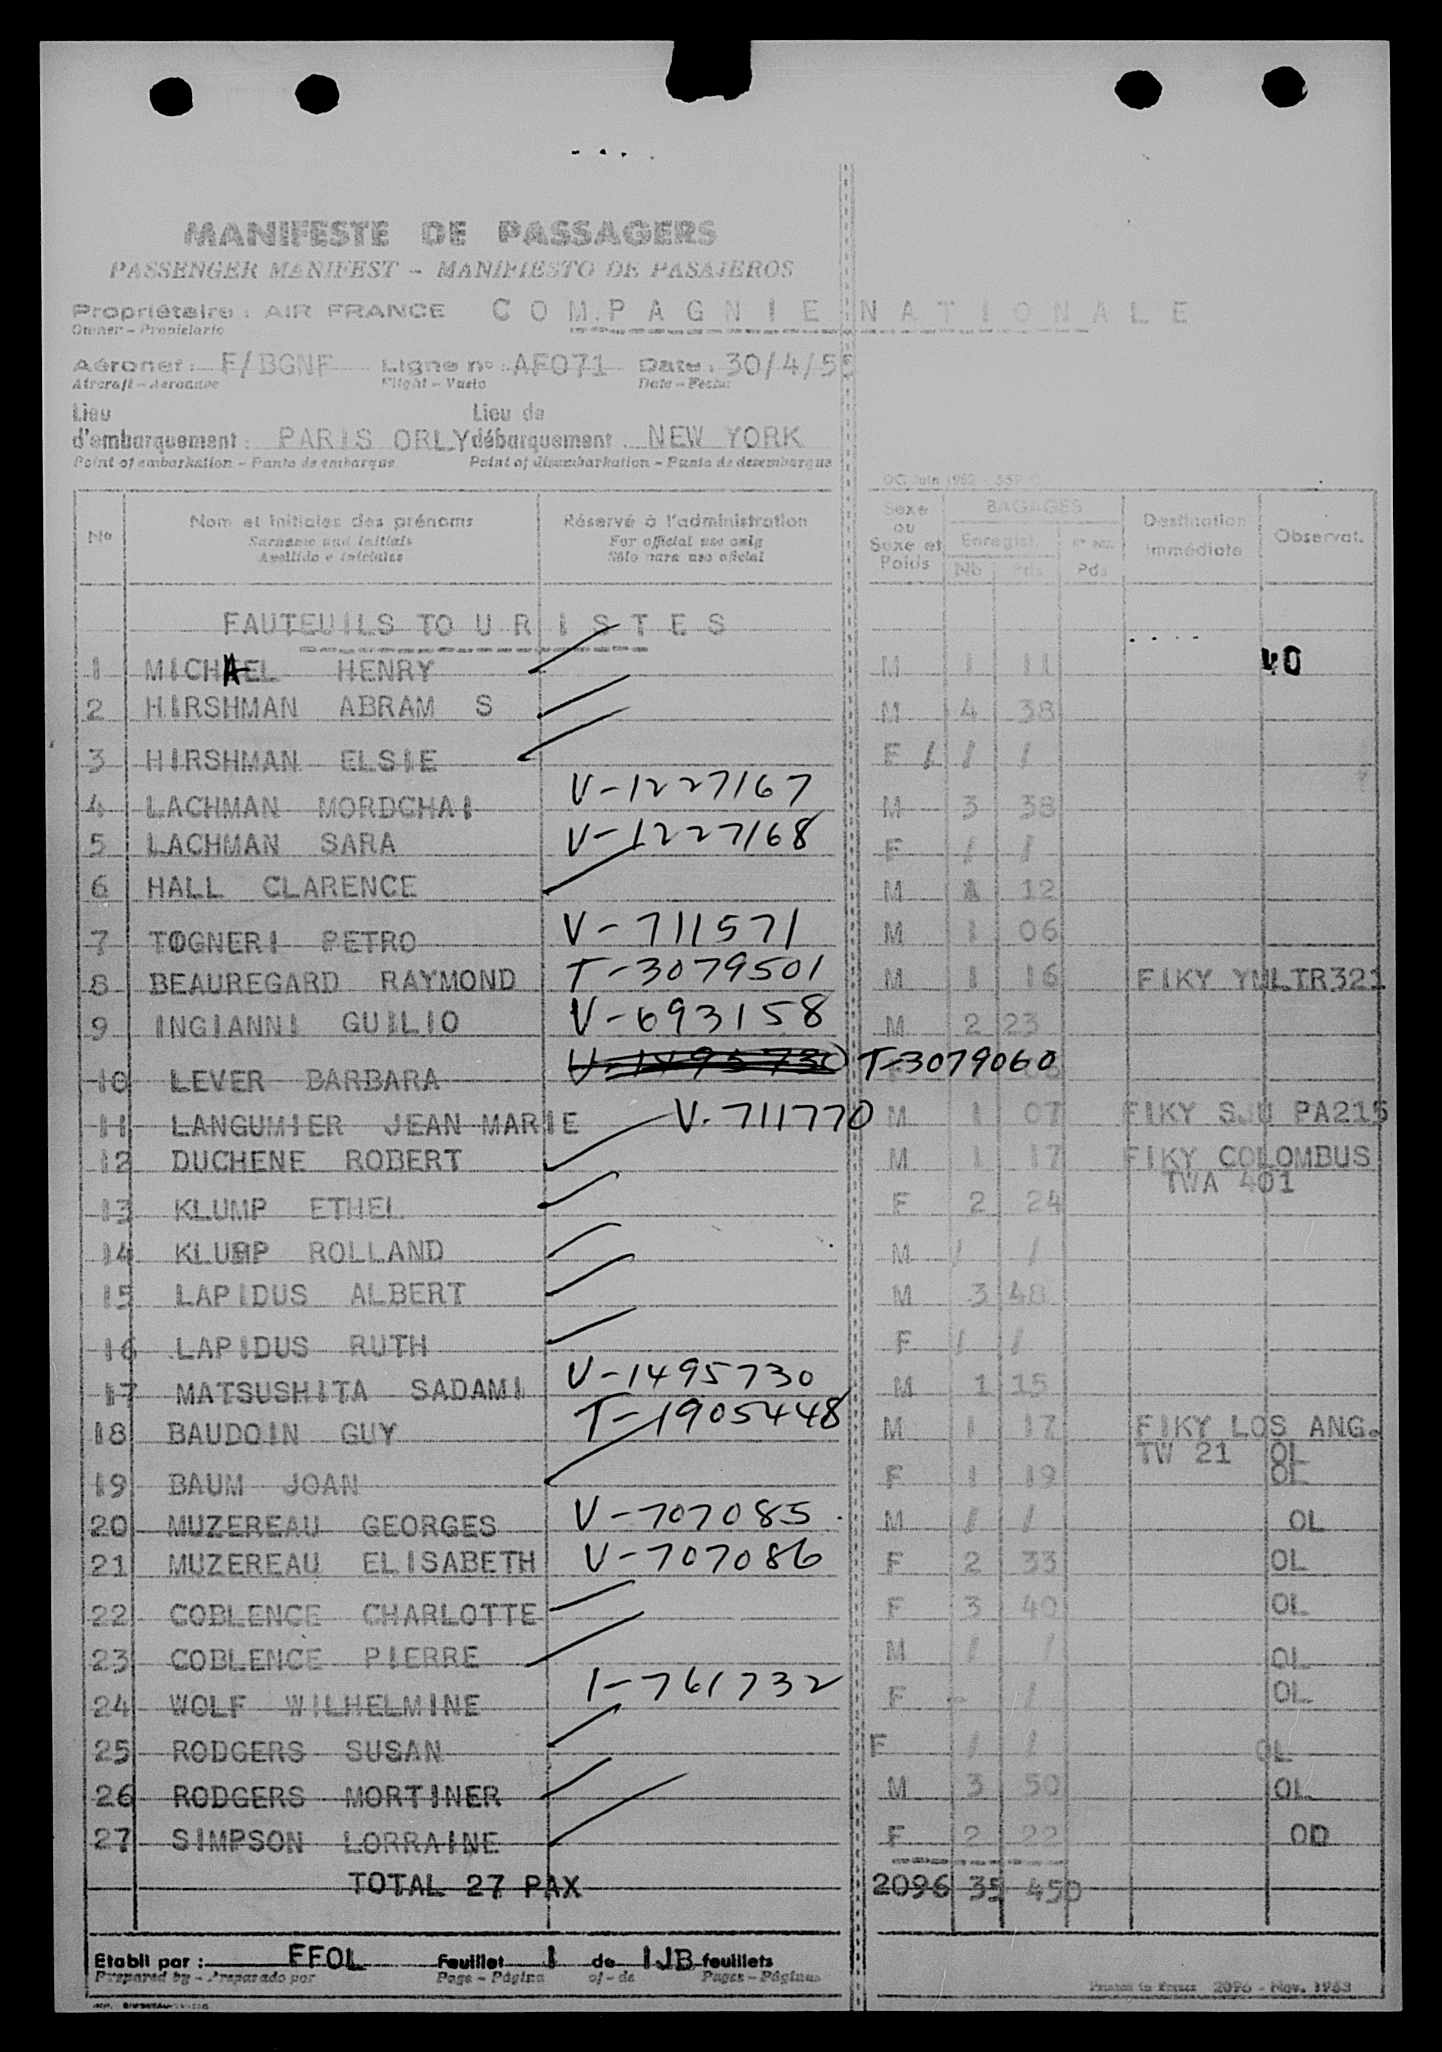 MANIFESTE DE PASSAGERS
PASSENGER MANIFEST - MANIFIESTO DE PASAJEROS
Propriétaire : AIR FRANCE COMPAGNIE NATIONALE
Owner - Propietario
Aéronef : F/BGNF Ligne no : AF071 Date : 30/4/55
Aircraft - Aeronave Flight - Vuelo Date - Fecha
Lieu Lieu de
d'embarquement : PARIS ORLY débarquement : NEW YORK
Point of embarkation - Punto de embarque Point of disembarkation - Punto de desembarque
No Nom et initiales des prénoms Réservé à l'administration Sexe ou Sexe et Poids BAGAGES Destination immédiate Observat.
Surname and initials For official use only Enregist.
Apellido e iniciales Sólo para uso oficial Nb Pds Pds
FAUTEUILS TOURISTES
1 MICHAEL HENRY M 1 11 40
2 HIRSHMAN ABRAM S M 4 38
3 HIRSHMAN ELSIE F / / /
4 LACHMAN MORDCHAI V-1227167 M 3 38
5 LACHMAN SARA V-1227168 F / /
6 HALL CLARENCE M 1 12
7 TOGNERI PETRO V-711571 M 1 06
8 BEAUREGARD RAYMOND T-3079501 M 1 16 FIKY YMLTR321
9 INGIANNI GUILIO V-693158 M 2 23
10 LEVER BARBARA V-1495730 T-3079060
11 LANGUMIER JEAN MARIE V-711770 M 1 07 FIKY SJU PA215
12 DUCHENE ROBERT M 1 17 FIKY COLOMBUS
TWA 401
13 KLUMP ETHEL F 2 24
14 KLUMP ROLLAND M / /
15 LAPIDUS ALBERT M 3 48
16 LAPIDUS RUTH F / /
17 MATSUSHITA SADAMI V-1495730 M 1 15
18 BAUDOIN GUY T-1905448 M 1 17 FIKY LOS ANG.
TW 21 OL
19 BAUM JOAN F 1 19 OL
20 MUZEREAU GEORGES V-707085 M / / OL
21 MUZEREAU ELISABETH V-707086 F 2 33 OL
22 COBLENCE CHARLOTTE F 3 40 OL
23 COBLENCE PIERRE M / / OL
24 WOLF WILHELMINE I-761732 F - / OL
25 RODGERS SUSAN F / / OL
26 RODGERS MORTINER M 3 50 OL
27 SIMPSON LORRAINE F 2 22 OD
TOTAL 27 PAX 2096 35 450
Etabli par : FFOL Feuillet 1 de IJB feuillets
Prepared by - Preparado por Page - Página of - de Pages - Páginas
Printed in France 2096 - Nov. 1953